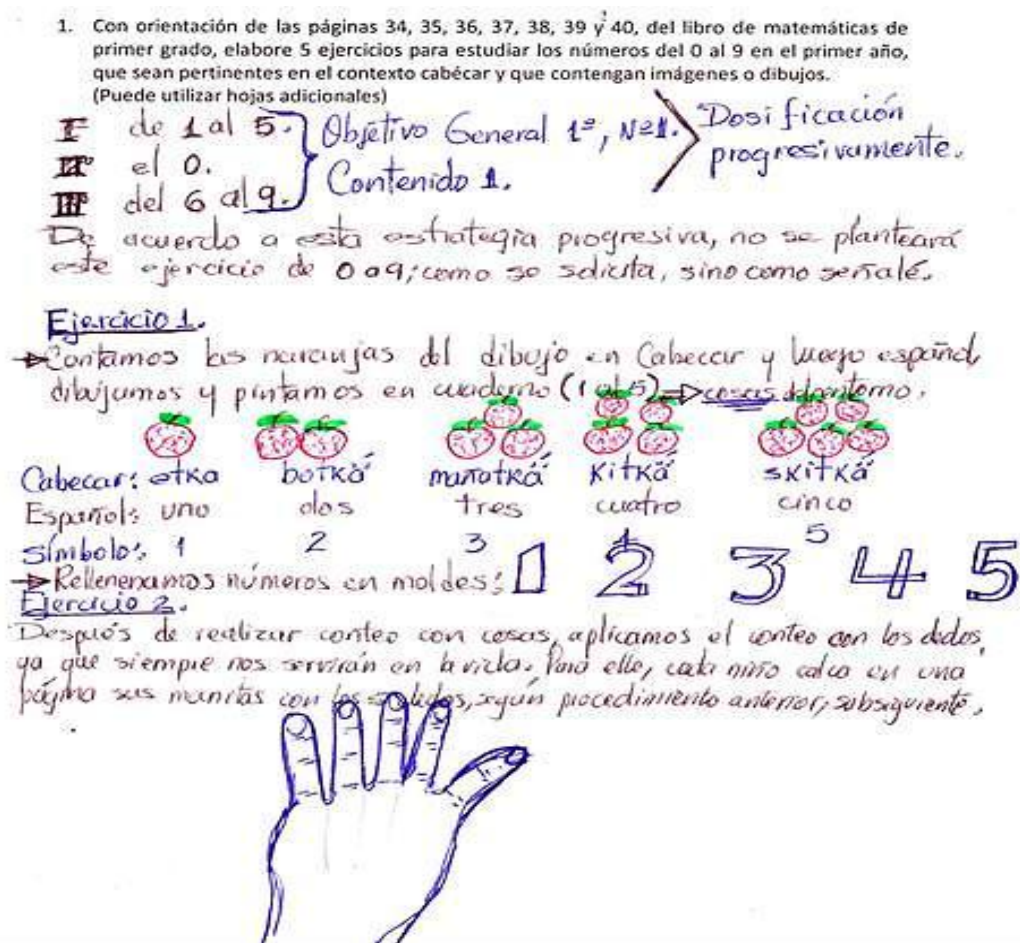 1. Con orientación de las páginas 34, 35, 36, 37, 38, 39 y 40, del libro de matemáticas de
primer grado, elabore 5 ejercicios para estudiar los números del 0 al 9 en el primer año,
que sean pertinentes en el contexto cabécar y que contengan imágenes o dibujos.
(Puede utilizar hojas adicionales)
I de 1 al 5. Objetivo General 1º, Nº1. Dosificación
II el 0. Contenido 1. progresivamente.
III del 6 al 9.
De acuerdo a esta estrategia progresiva, no se planteará
este ejercicio de 0 a 9; como se solicita, sino como señalé.
Ejercicio 1.
Contamos las naranjas del dibujo en Cabecar y luego español,
dibujamos y pintamos en cuaderno (1 al 5) cosas del entorno.
Cabecar: etka botkä́ mañatkä́ kitkä́ skitkä́
Español: uno dos tres cuatro cinco
Símbolo: 1 2 3 4 5
Rellenenamos números en moldes: 1 2 3 4 5
Ejercicio 2.
Después de realizar conteo con cosas, aplicamos el conteo con los dedos,
ya que siempre nos servirán en la vida. Para ello, cada niño calca en una
página sus manitas con los dedos, según procedimiento anterior, subsiguiente.